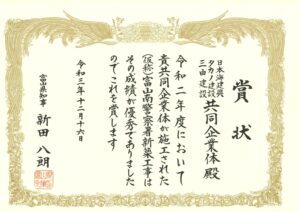 賞状
日本海建興
タカノ建設
三由建設
共同企業体 殿
令和二年度において
貴共同企業体が施工された
(仮称)富山南警察署新築工事は
その成績が優秀でありました
のでこれを賞します
令和三年十二月十六日
富山県知事 新田八朗